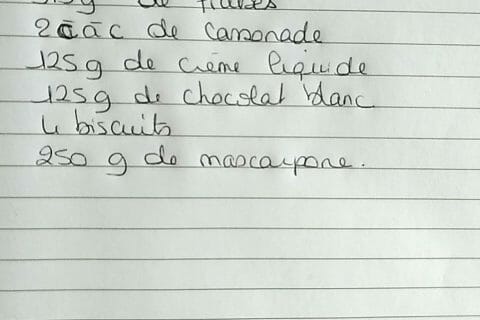 g de fraises
2 càc de cassonade
125g de crème liquide
125g de chocolat blanc
4 biscuits
250 g de mascarpone.